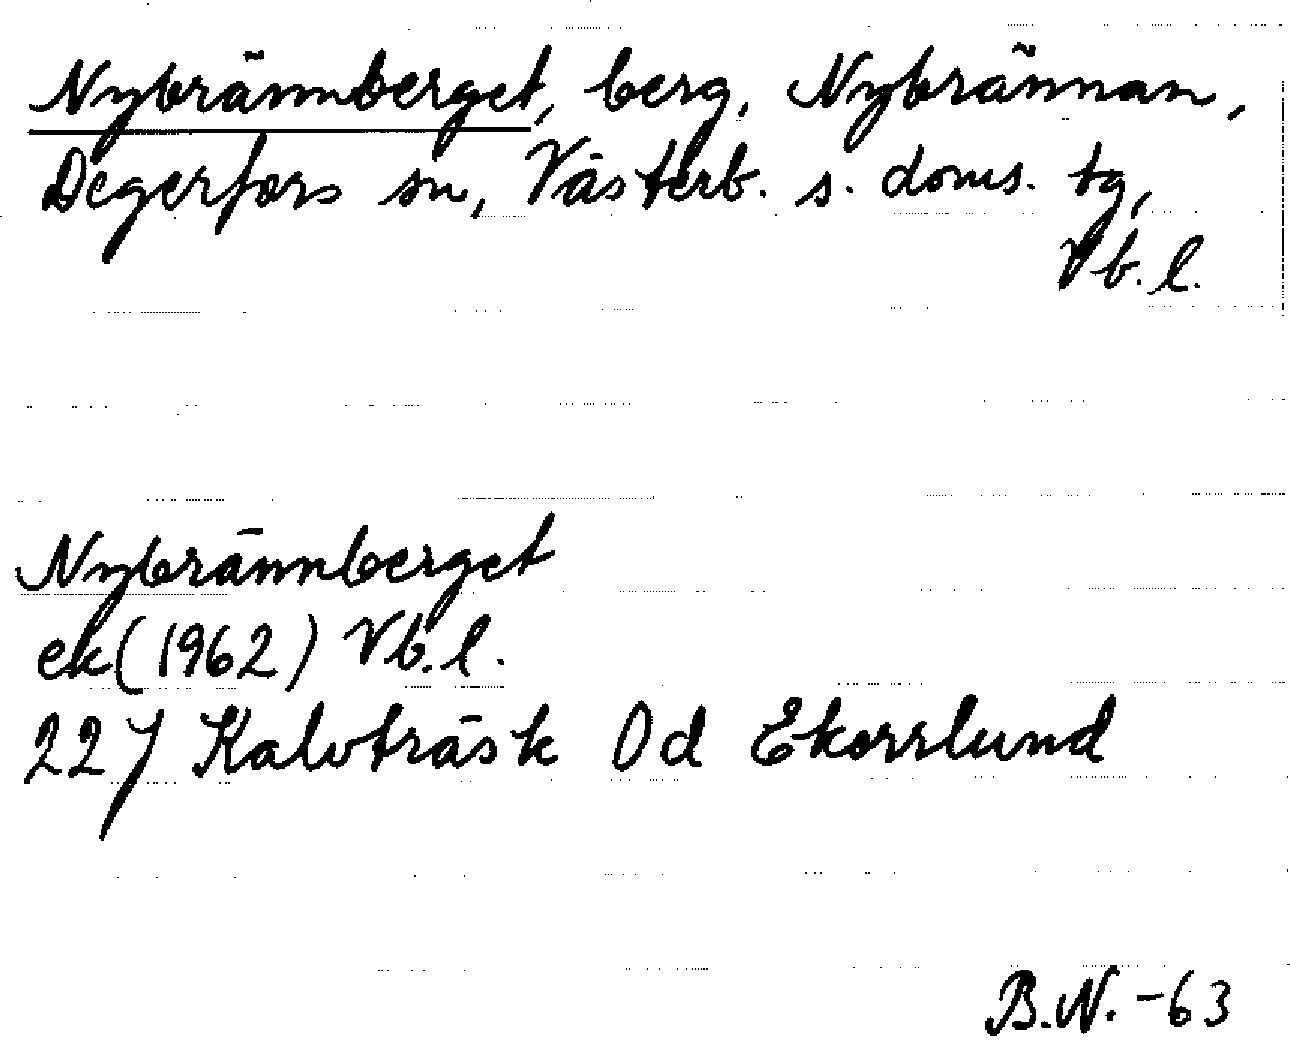 Nybrännberget, berg, Nybrännan,
Degerfors sn, Västerb. s. doms. tg,
Vb. l.
Nybrännberget
ek (1962) Vb. l.
22J Kalvträsk 0d Ekorrlund
B.N. -63